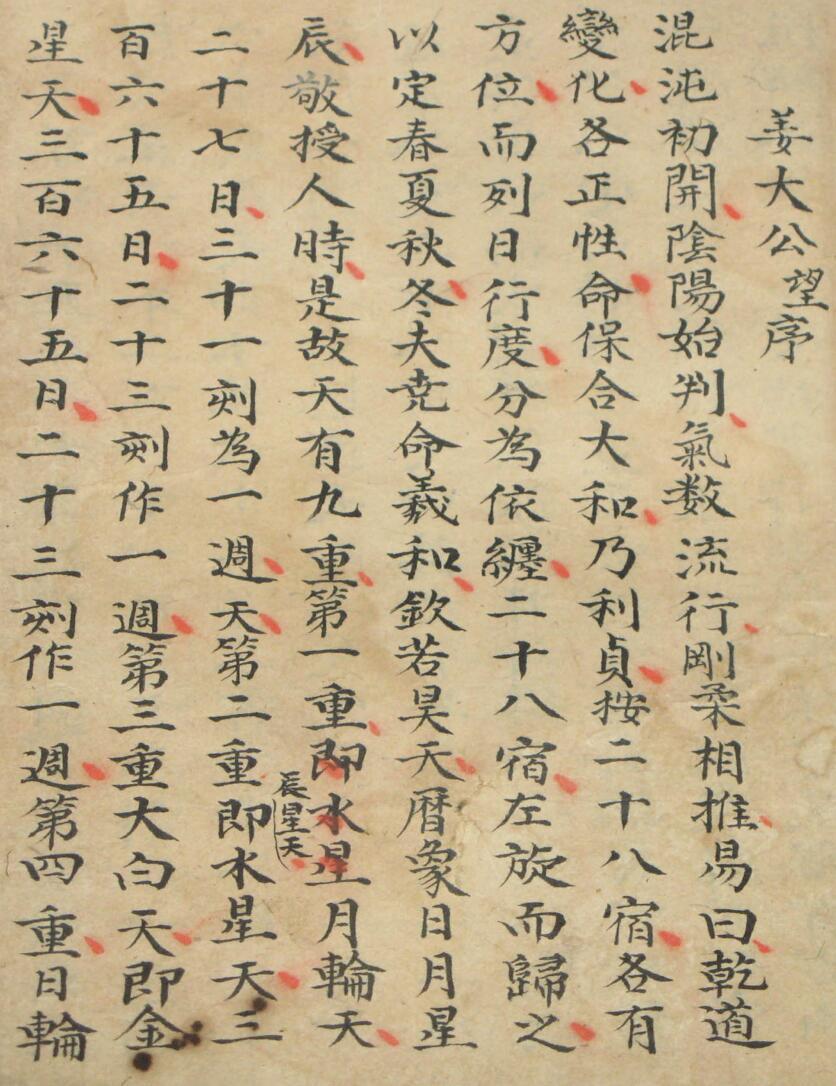 姜大公望序
混沌初開陰陽始判氣数流行剛柔相推易曰乾道
變化各正性命保合大和乃利貞按二十八宿各有
方位而列日行度分為依纏二十八宿左旋而歸之
以定春夏秋冬夫尭命羲和欽若昊天暦象日月星
辰敬授人時是故天有九重第一重即水星月輪天
二十七日三十一刻為一週天第二重即水星天三
辰星天
百六十五日二十三刻作一週第三重大白天即金
星天三百六十五日二十三刻作一週第四重日輪